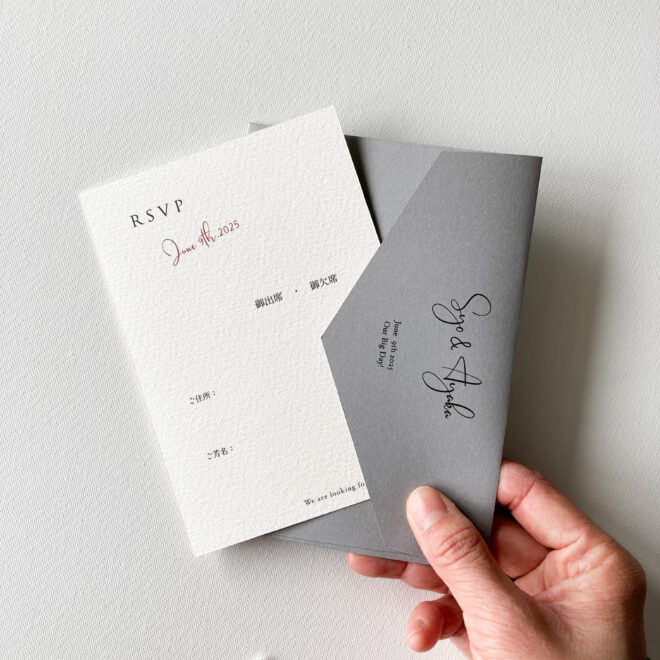 RSVP
June 9th.2025
御出席 ・ 御欠席
ご住所：
ご芳名：
We are looking fo
Syo & Ayaka
June 9th 2025
Our Big Day!